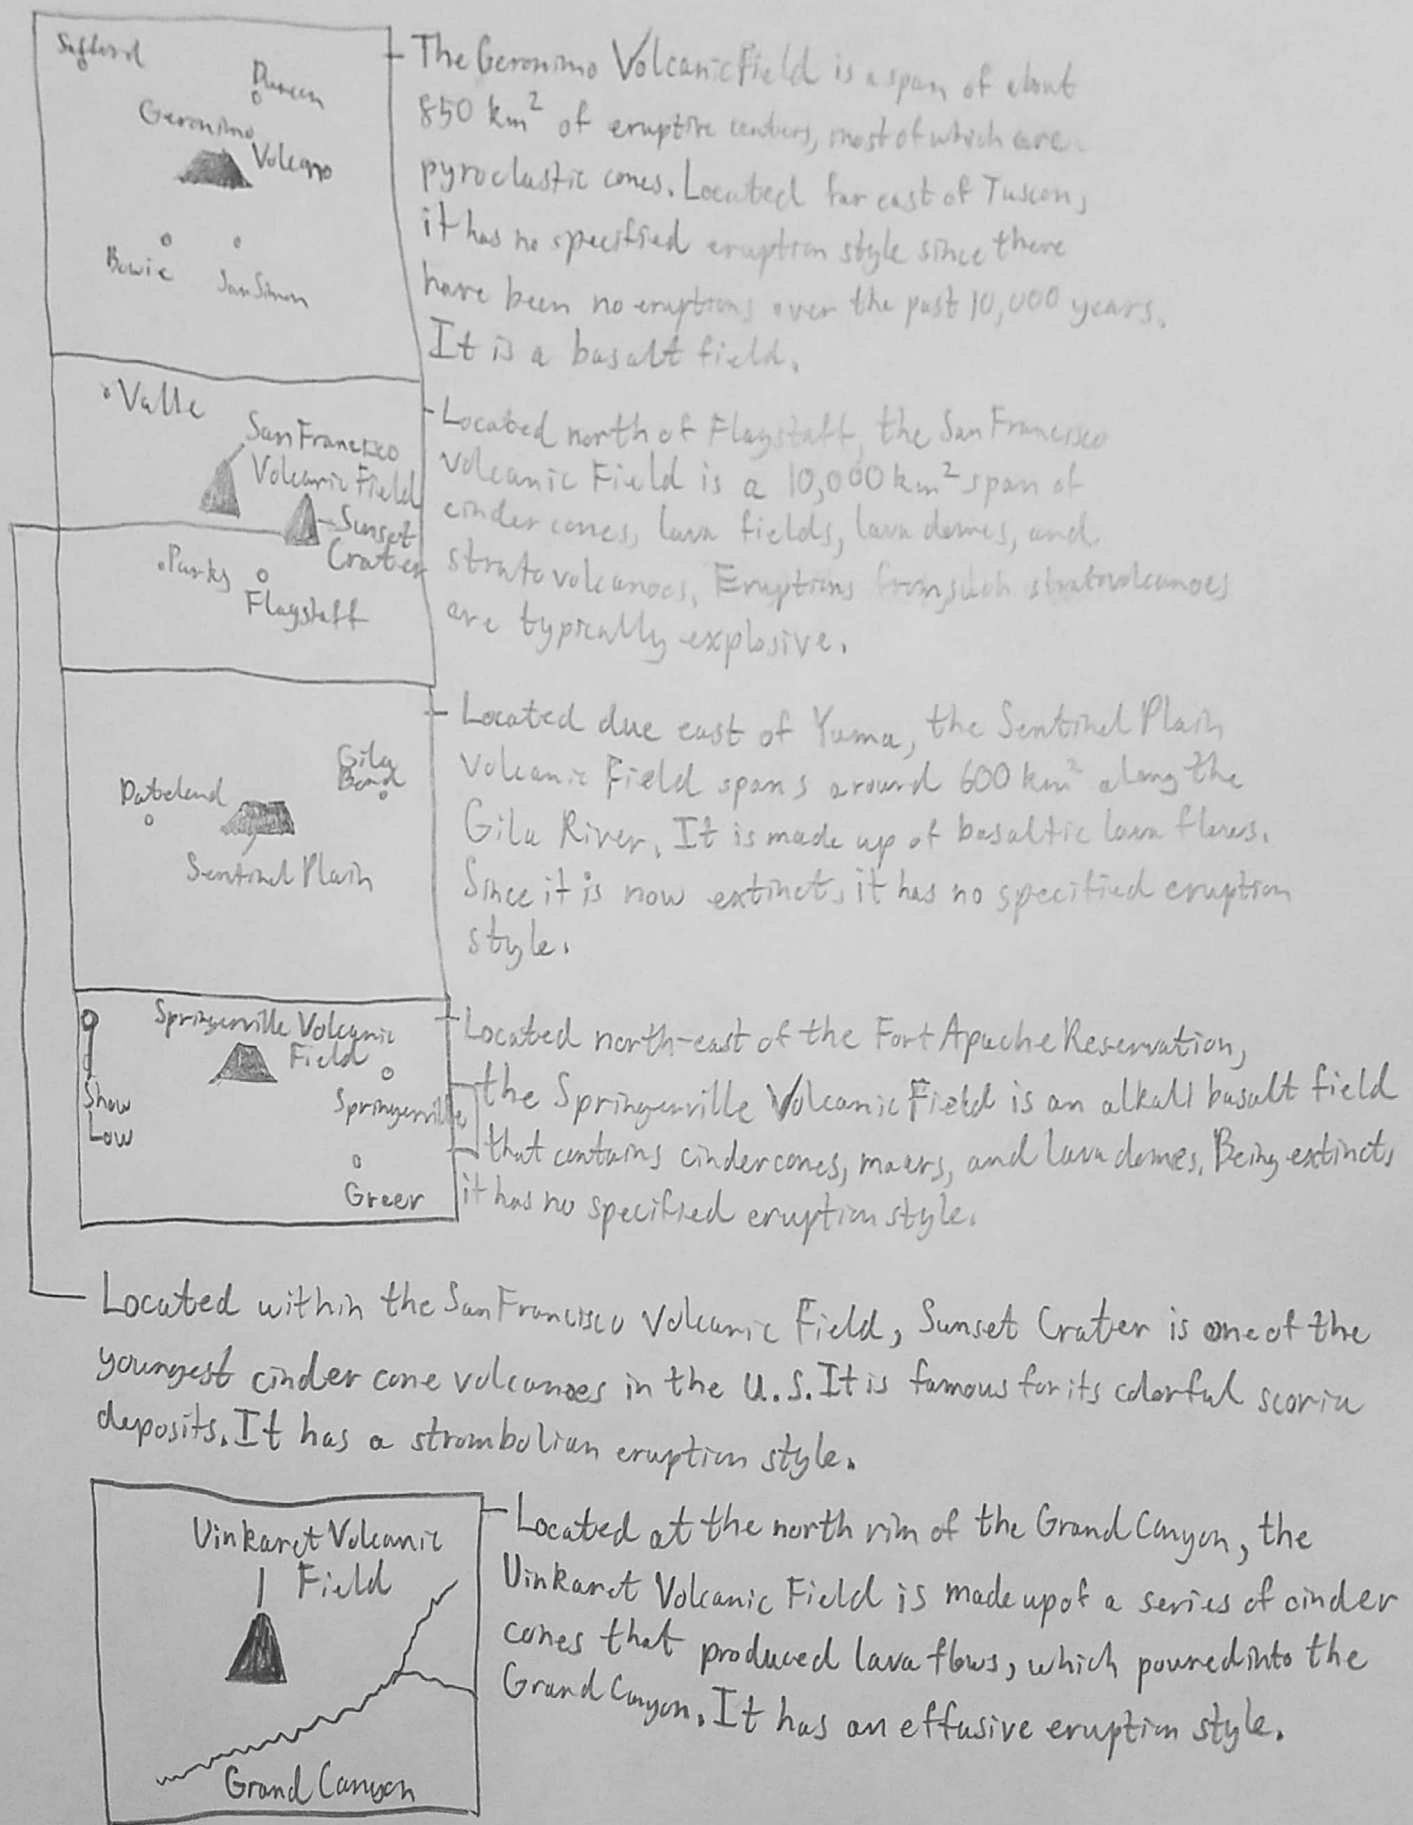 Safford
Duncan
Geronimo
Volcano
Bowie
San Simon
The Geronimo Volcanic Field is a span of about
850 km² of eruptive centers, most of which are
pyroclastic cones. Located far east of Tuscon,
it has no specified eruption style since there
have been no eruptions over the past 10,000 years.
It is a basalt field.
Valle
San Francisco
Volcanic Field
Sunset
Crater
Parks
Flagstaff
Located north of Flagstaff, the San Francisco
Volcanic Field is a 10,000 km² span of
cinder cones, lava fields, lava domes, and
stratovolcanoes. Eruptions from such stratovolcanoes
are typically explosive.
Gila
Bend
Dateland
Sentinel Plain
Located due east of Yuma, the Sentinel Plain
Volcanic Field spans around 600 km² along the
Gila River. It is made up of basaltic lava flows.
Since it is now extinct, it has no specified eruption
style.
Springerville Volcanic
Field
Show
Low
Springerville
Greer
Located north-east of the Fort Apache Reservation,
the Springerville Volcanic Field is an alkali basalt field
that contains cinder cones, maars, and lava domes. Being extinct,
it has no specified eruption style.
Located within the San Francisco Volcanic Field, Sunset Crater is one of the
youngest cinder cone volcanoes in the U.S. It is famous for its colorful scoria
deposits. It has a strombolian eruption style.
Uinkaret Volcanic
Field
Grand Canyon
Located at the north rim of the Grand Canyon, the
Uinkaret Volcanic Field is made up of a series of cinder
cones that produced lava flows, which poured into the
Grand Canyon. It has an effusive eruption style.